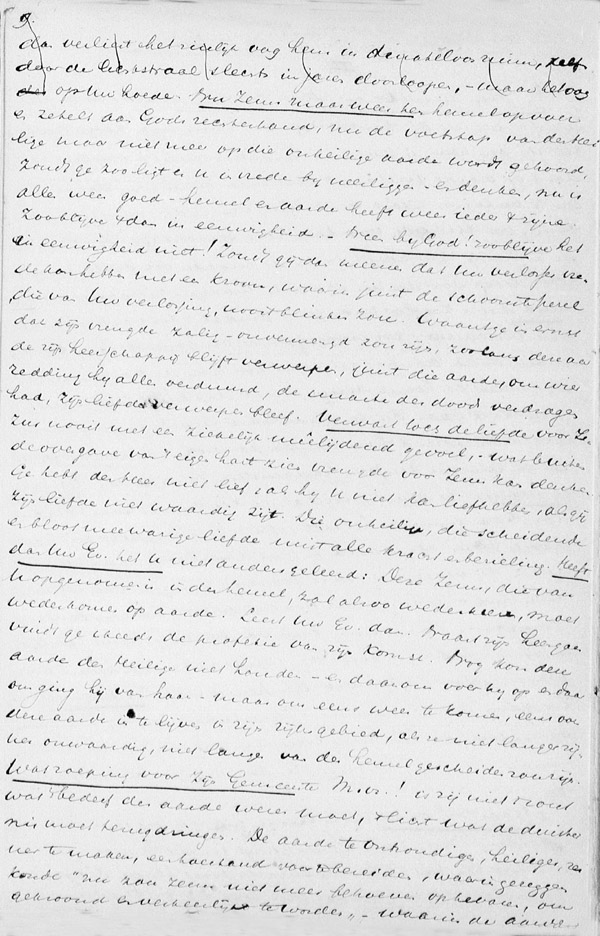 9.
dan verliest het zielsoog hem in de onmeetbare ruimte, zelf
door de lichtstraal slechts in jaren doorloopen, - maar het oog
op Uw hoede. Ben Jezus maar weer ten hemel opvoer
en zetelt aan Gods rechterhand, nu de voetstap van den Hei-
lige maar niet meer op die onheilige aarde wordt gehoord,
zoudt ge zoo ligt er u in vrede bij neerliggen - en denken, nu is
alles weer goed - hemel en aarde heeft weer ieder 't zijne.
Zoo blijve 't dan in eeuwigheid. - Neen bij God! zoo blijve het
in eeuwigheid niet! Zoudt gij dan meenen dat Uw verlosser vre-
de kan hebben met een kroon, waarin juist de schoonste parel
die van Uw verlossing, nooit blinken zou. Waant ge in ernst
dat zijn vreugde zalig - onvermengd zou zijn, zoolang deze aar-
de zijn heerschappij blijft verwerpen, juist die aarde, om wier
redding hij alles verduurd, de smarte des doods verdragen
had, zijn liefde verwerpen bleef. Verwart toch de liefde voor Je-
zus nooit met een ziekelijk medelijdend gevoel, - wat buiten
de overgave van 't eigen hart zich vreugde voor Jezus kan denken.
Ge hebt den Heer niet lief, als hij u niet kan liefhebben, als gij
zijn liefde niet waardig zijt. Die onheilige, die scheidende
en bloot meewarige liefde mist alle kracht en bezieling. Heeft
dan Uw Ev. het u niet anders geleerd: Deze Jezus, die van
U opgenomen is in den hemel, zal alzoo wederkomen, moet
wederkomen op aarde. Leest Uw Ev. dan. Naast zijn heengaan
vindt ge steeds de profetie van zijn komst. Nog kon den
aarde den Heilige niet houden - en daarom voer hij op en daar
om ging hij van haar - maar om eens weer te komen, eens om
deze aarde in te lijven in zijn rijksgebied, als ze niet langer zij-
ner onwaardig, niet langer van den hemel gescheiden zou zijn.
Wat roeping voor Zijn Gemeente M. br.! is zij niet 't zout
wat 't bederf der aarde weren moet, 't licht wat de duister
nis moet terugdringen. De aarde te ontzondigen, heiligen, rei-
ner te maken, een toestand voor te bereiden, waarin gezegd
konde "nu zou Jezus niet meer behoeven op te varen, om
gekroond en verheerlijkt te worden", - waarin de aarde